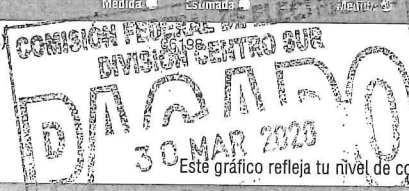 Medida Estimada
COMISIÓN FEDERAL DE
DIVISIÓN CENTRO SUR
PAGADO
30 MAR
Este gráfico refleja tu nivel de co